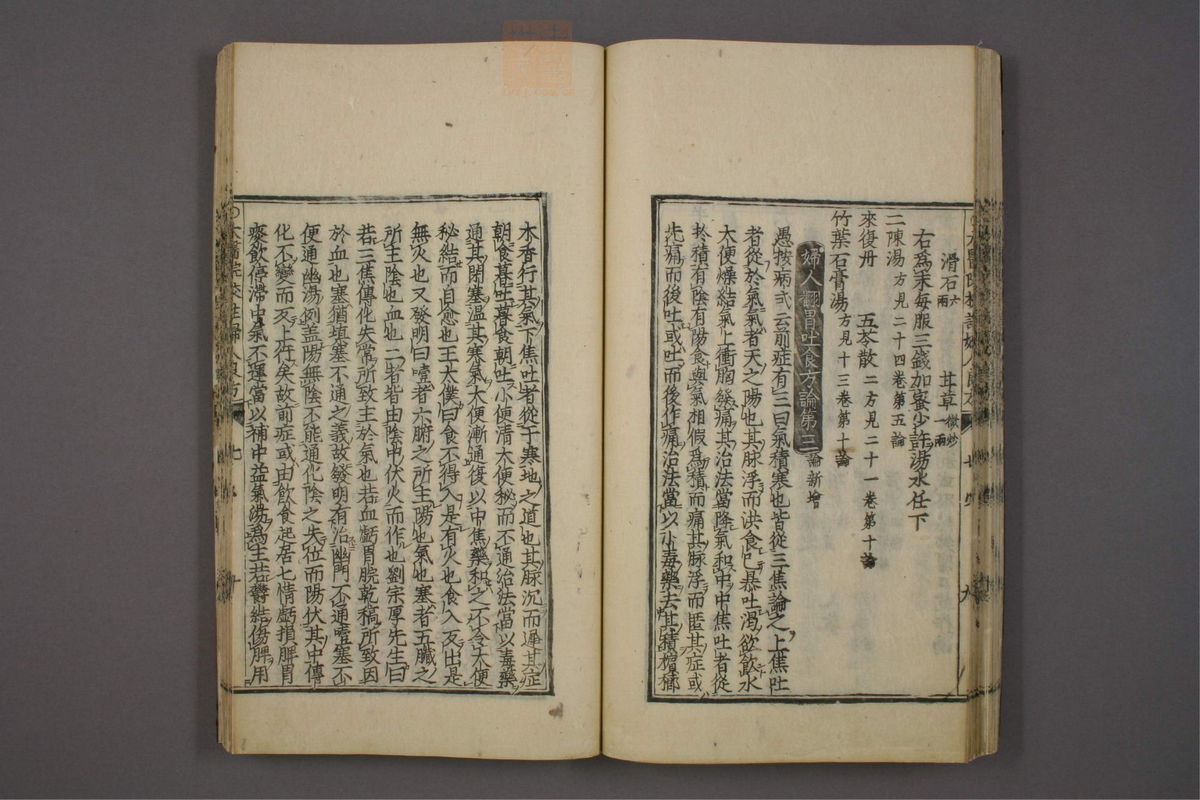 滑石六兩　甘草一兩微炒
右爲末每服三錢加蜜少許湯水任下
二陳湯方見二十四卷第五論
來復丹　五苓散二方見二十一卷第十論
竹葉石膏湯方見十三卷第十論
婦人翻胃吐食方論第三論新增
愚按病式云前症有三曰氣積寒也皆從三焦論之上焦吐
者從於氣氣者天之陽也其脉浮而洪食已暴吐渴欲飲水
大便燥結氣上衝胸發痛其治法當降氣和中中焦吐者從
於積有陰有陽食與氣相假爲積而痛其脉浮而匿其症或
先痛而後吐或吐而後作痛治法當以小毒藥去其積檳榔
木香行其氣下焦吐者從于寒地之道也其脉沉而遲其症
朝食暮吐暮食朝吐小便清大便秘而不通治法當以毒藥
通其閉塞溫其寒氣大便漸通復以中焦藥和之不令大便
秘結而自愈也王太僕曰食不得入是有火也食入反出是
無火也又發明曰噎者六腑之所主陽也氣也塞者五臟之
所主陰也血也二者皆由陰中伏火而作也劉宗厚先生曰
若三焦傳化失常所致主於氣也若血虧胃脘乾槁所致因
於血也塞猶填塞不通之義故發明有治幽門不通噎塞不
便通幽湯例盖陽無陰不能通化陰之失位而陽伏其中傳
化不變而反上行矣故前症或由飲食起居七情虧損脾胃
痰飲停滯中氣不運當以補中益氣湯爲主若鬱結傷脾用